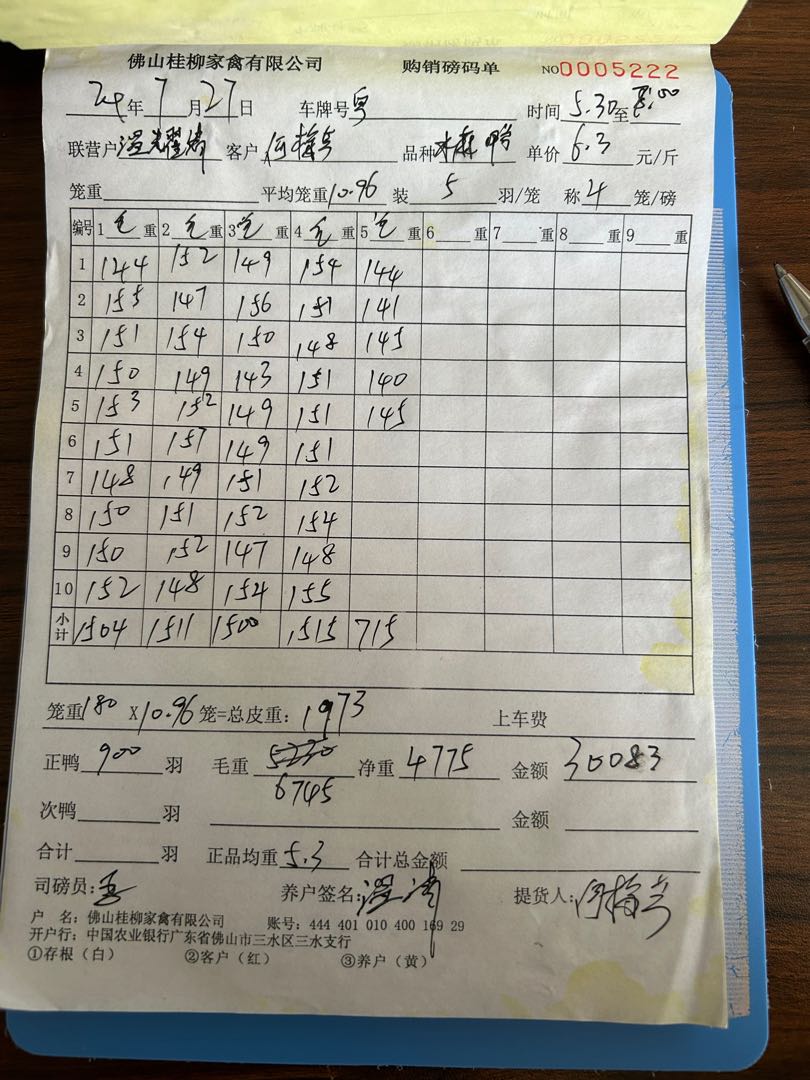 佛山桂柳家禽有限公司 购销磅码单 NO0005222
24年7月27日 车牌号粤 时间5.30至8:00
联营户 客户 品种 单价6.3元/斤
笼重 平均笼重10.96装5羽/笼 称4笼/磅
编号 1毛重 2毛重 3毛重 4毛重 5毛重 6重 7重 8重 9重
1 144 152 149 154 144
2 155 147 156 151 141
3 151 154 150 148 145
4 150 149 143 151 140
5 153 152 149 151 145
6 151 157 149 151
7 148 149 151 152
8 150 151 152 154
9 150 152 147 148
10 152 148 154 155
小计 1504 1511 1500 1515 715
笼重180X10.96笼=总皮重：1973 上车费
正鸭900羽 毛重 净重4775 金额30083
6745
次鸭羽 金额
合计羽 正品均重5.3 合计总金额
司磅员： 养户签名： 提货人：
户 名：佛山桂柳家禽有限公司 账号：444 401 010 400 169 29
开户行：中国农业银行广东省佛山市三水区三水支行
①存根（白） ②客户（红） ③养户（黄）